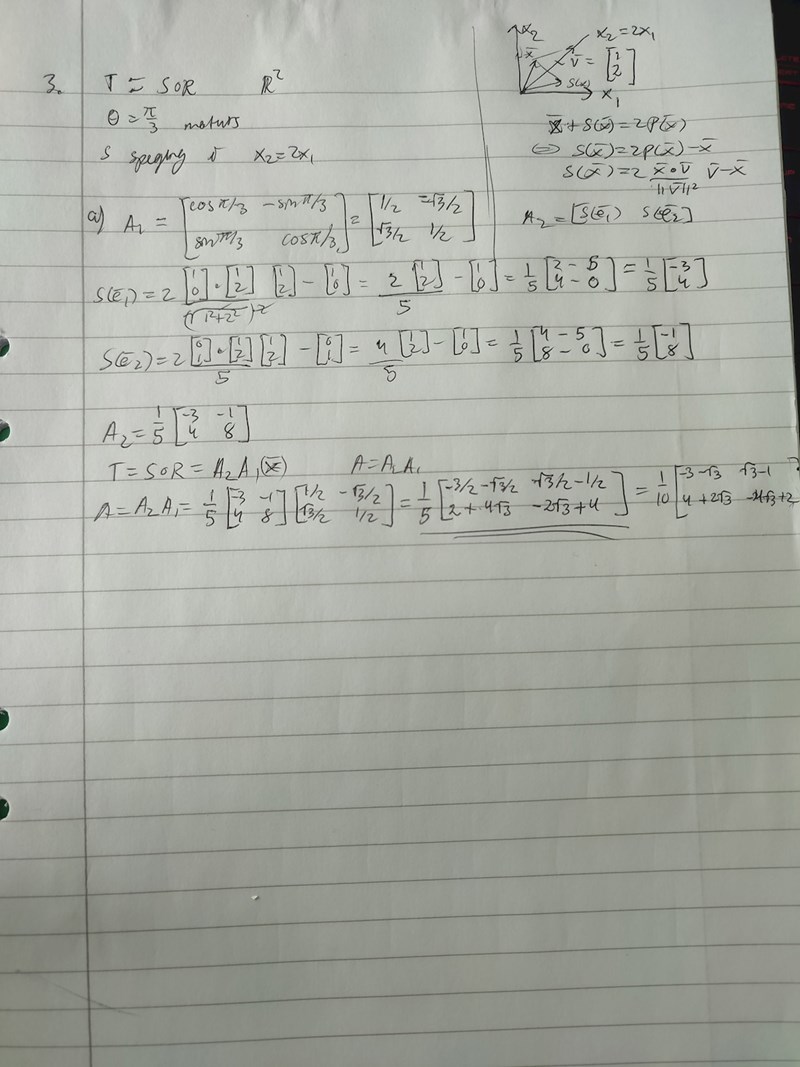 3. T = SOR ℝ²
θ = π/3 moturs
S spegling i x₂=2x₁
x₂
x₂=2x₁
x̄ v̄ = [1; 2]
S(x̄)
x₁
x̄ + S(x̄) = 2P(x̄)
⇔ S(x̄) = 2P(x̄) - x̄
S(x̄) = 2 (x̄•v̄)/||v̄||² v̄ - x̄
A₂ = [S(ē₁) S(ē₂)]
a) A₁ = [cos π/3 -sin π/3; sin π/3 cos π/3] = [1/2 -√3/2; √3/2 1/2]
S(ē₁) = 2 [1; 0]•[1; 2]/(√1²+2²)² [1; 2] - [1; 0] = 2/5 [1; 2] - [1; 0] = 1/5 [2 - 5; 4 - 0] = 1/5 [-3; 4]
S(ē₂) = 2 [0; 1]•[1; 2]/5 [1; 2] - [0; 1] = 4/5 [1; 2] - [1; 0] = 1/5 [4 - 5; 8 - 0] = 1/5 [-1; 8]
A₂ = 1/5 [-3 -1; 4 8]
T = SOR = A₂A₁(x̄) A = A₂A₁
A = A₂A₁ = 1/5 [-3 -1; 4 8] [1/2 -√3/2; √3/2 1/2] = 1/5 [-3/2 -√3/2 √3/2 -1/2; 2+4√3 -2√3+4] = 1/10 [-3-√3 √3-1; 4+2√3 -4√3+2]